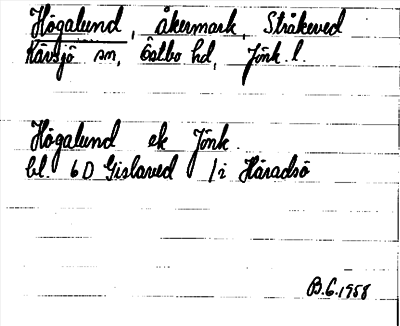 Högalund, åkermark, Stråkeved
Kävsjö sn, Östbo hd, Jönk. l.
Högalund ek Jönk.
bl. 6D Gislaved 1i Häradsö
B.G. 1958